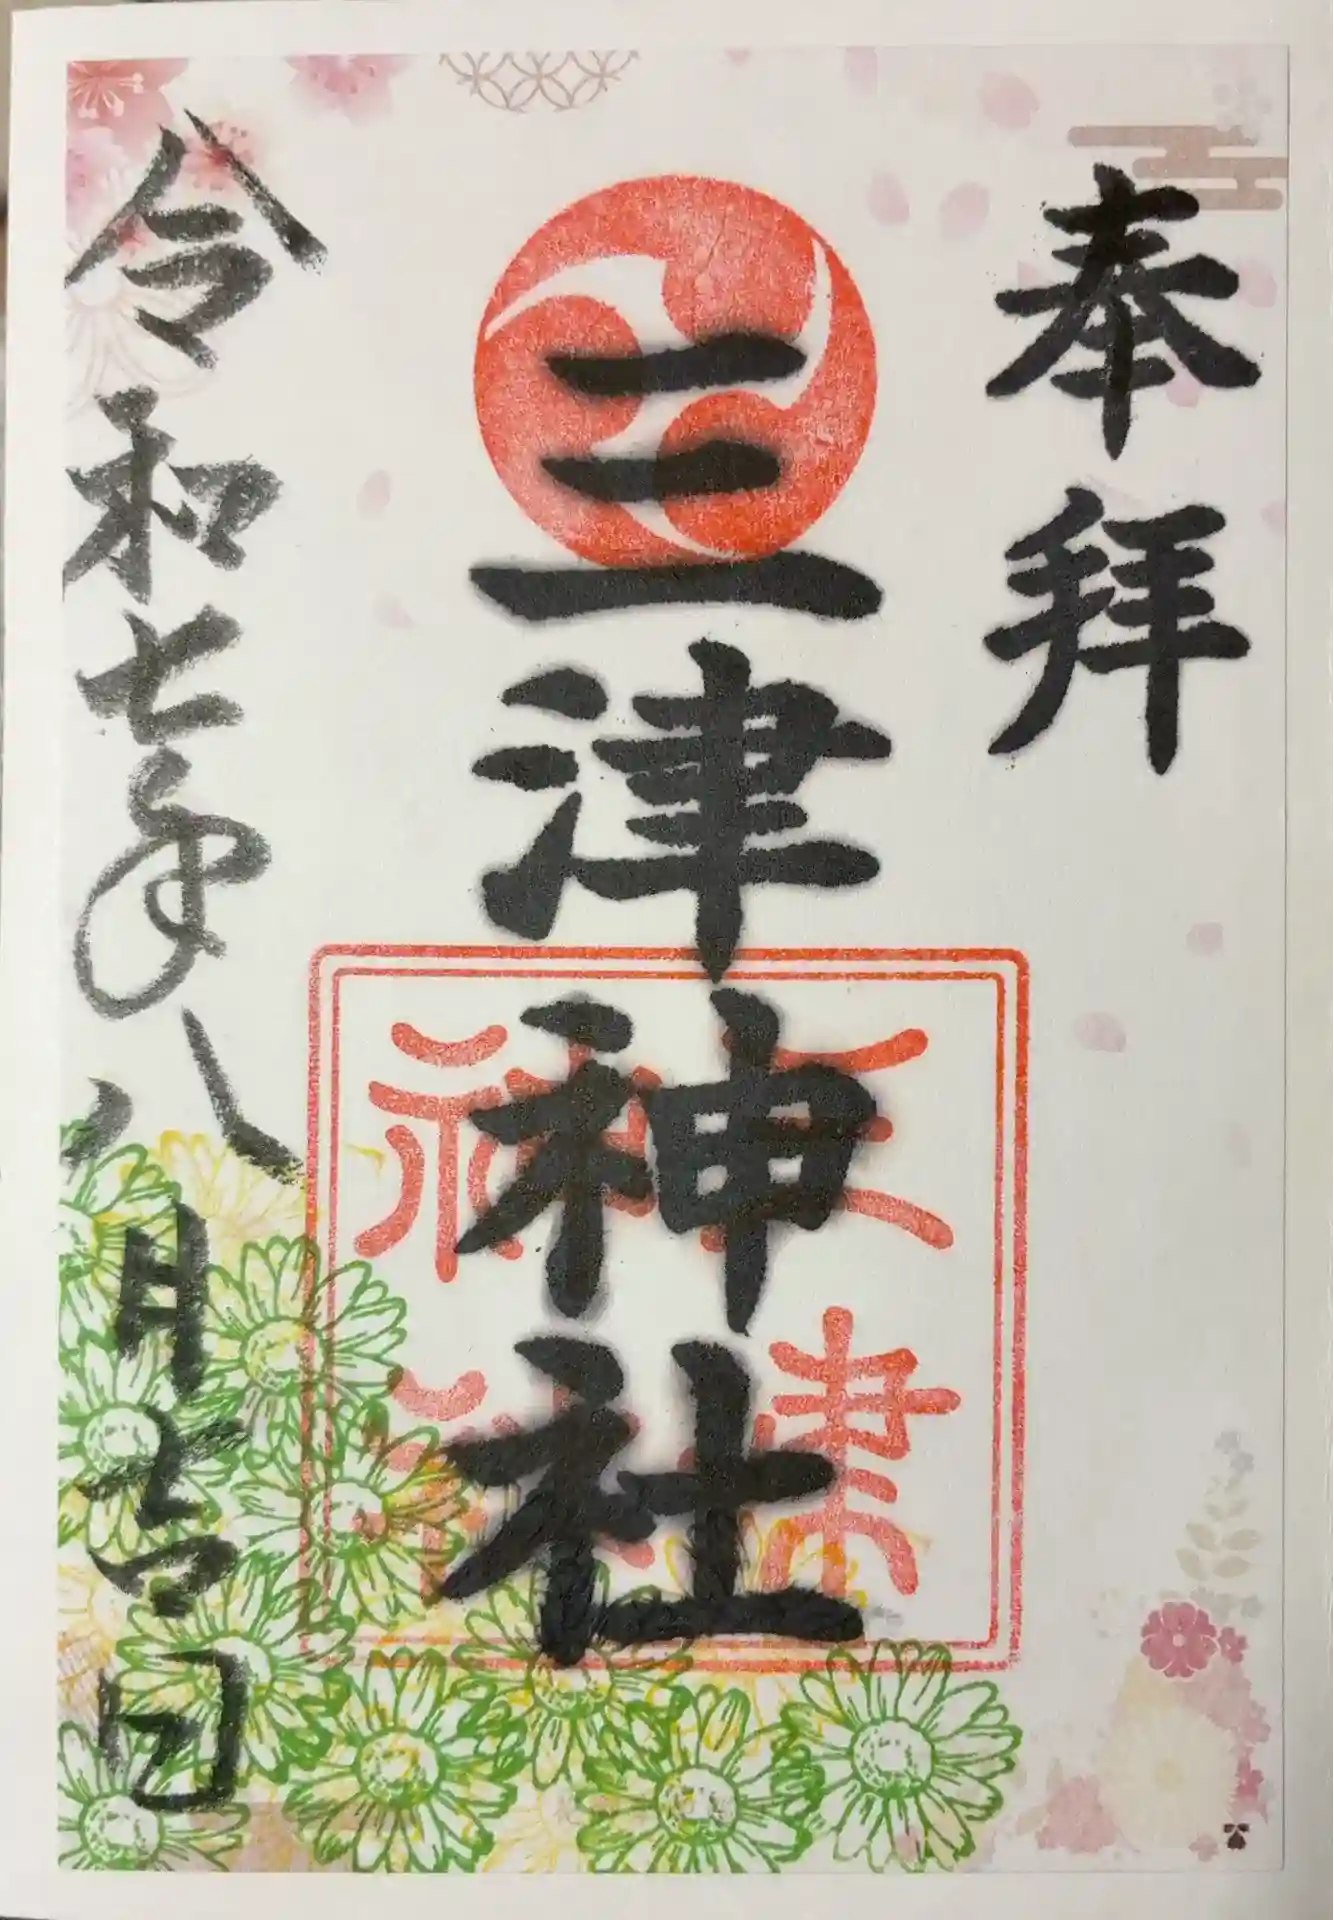 奉拝
三津神社
三津
神社
令和七年八月 日